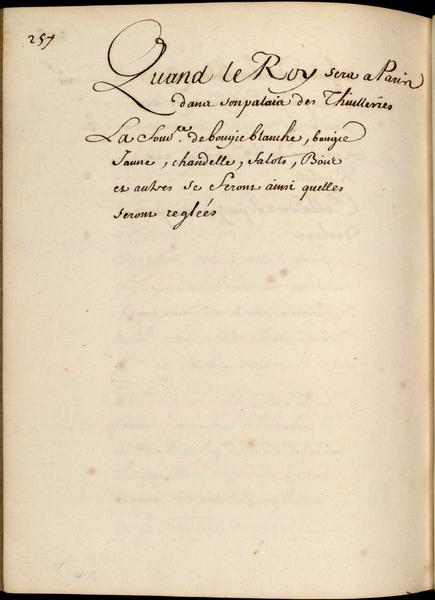 257
Quand le Roy sera a Paris
dans son palais des Thuilleries
La Four.re de bougie blanche, bougie
Jaune, chandelle, falots,
et autres se feront ainsi quelles
seront regleés